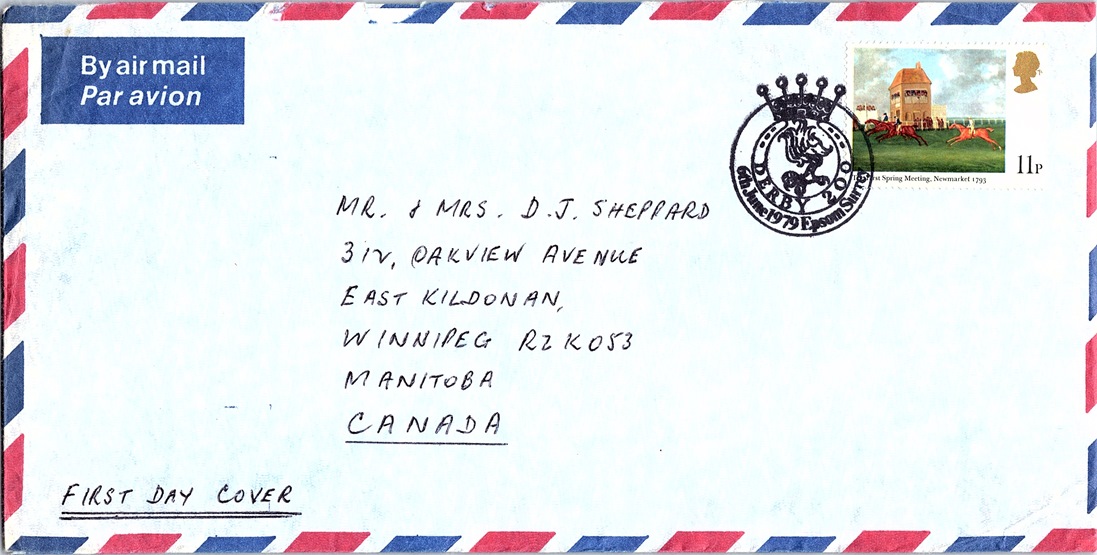 By air mail
Par avion
11P
First Spring Meeting, Newmarket 1793
DERBY 200
6th June 1979 Epsom Surrey
MR. & MRS. D.J. SHEPPARD
312, OAKVIEW AVENUE
EAST KILDONAN,
WINNIPEG R2K0S3
MANITOBA
CANADA
FIRST DAY COVER